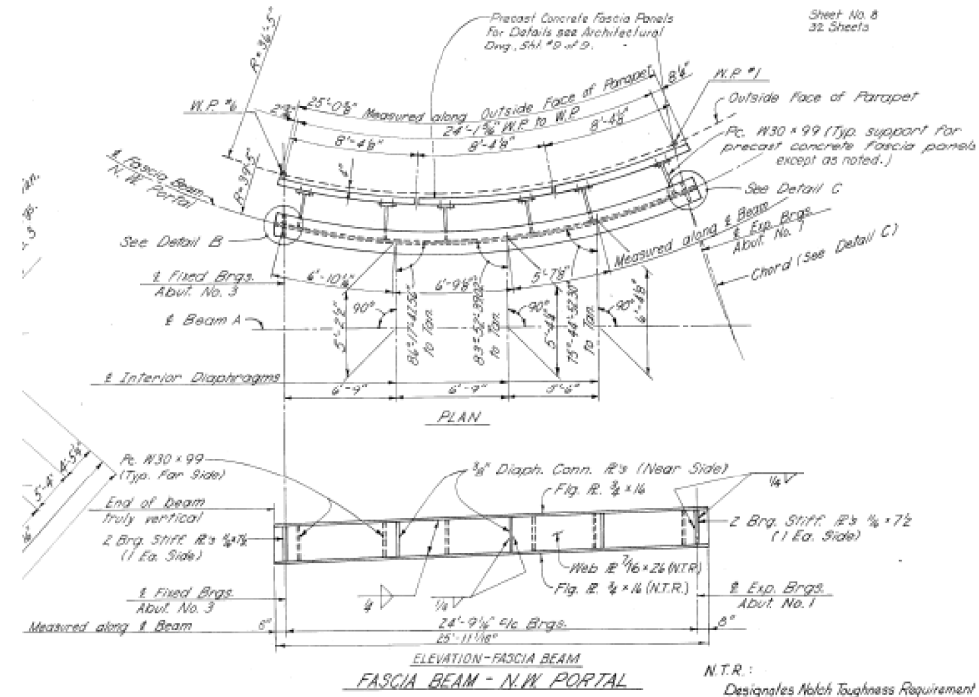 Sheet No. 8
32 Sheets
Precast Concrete Fascia Panels
For Details see Architectural
Dwg., Sht. #9 of 9.
R=36'-5"
W.P. #6
W.P. #1
8¼"
25'-0⅜" Measured along Outside Face of Parapet
24'-1⅝" W.P. to W.P.
8'-4⅛"
8'-4⅛"
8'-4⅛"
Outside Face of Parapet
Pc. W30 x 99 (Typ. support for
precast concrete fascia panels
except as noted.)
℄ Fascia Beam
N.W. Portal
R=39'-5"
See Detail C
See Detail B
Measured along ℄ Beam
℄ Exp. Brgs.
Abut. No. 1
Chord (See Detail C)
℄ Fixed Brgs.
Abut. No. 3
6'-10¼"
6'-9⅛"
5'-7⅞"
90°
90°
90°
℄ Beam A
5'-2½"
to Tan.
to Tan.
5'-4⅛"
to Tan.
6'-4⅛"
℄ Interior Diaphragms
6'-9"
6'-9"
5'-6"
PLAN
5'-4"
4'-5¼"
Pc. W30 x 99
(Typ. Far Side)
⅜" Diaph. Conn. ℞'s (Near Side)
Flg. ℞ ¾ x 16
¼
End of beam
truly vertical
2 Brg. Stiff. ℞'s
(1 Ea. Side)
2 Brg. Stiff. ℞'s 11/16 x 7½
(1 Ea. Side)
Web ℞ 7/16 x 26 (N.T.R.)
Flg. ℞ ¾ x 16 (N.T.R.)
¼
℄ Fixed Brgs.
Abut. No. 3
℄ Exp. Brgs.
Abut. No. 1
Measured along ℄ Beam
6"
24'-9 1/16" c/c Brgs.
8"
25'-11 1/16"
ELEVATION-FASCIA BEAM
FASCIA BEAM - N.W. PORTAL
N.T.R.:
Designates Notch Toughness Requirement